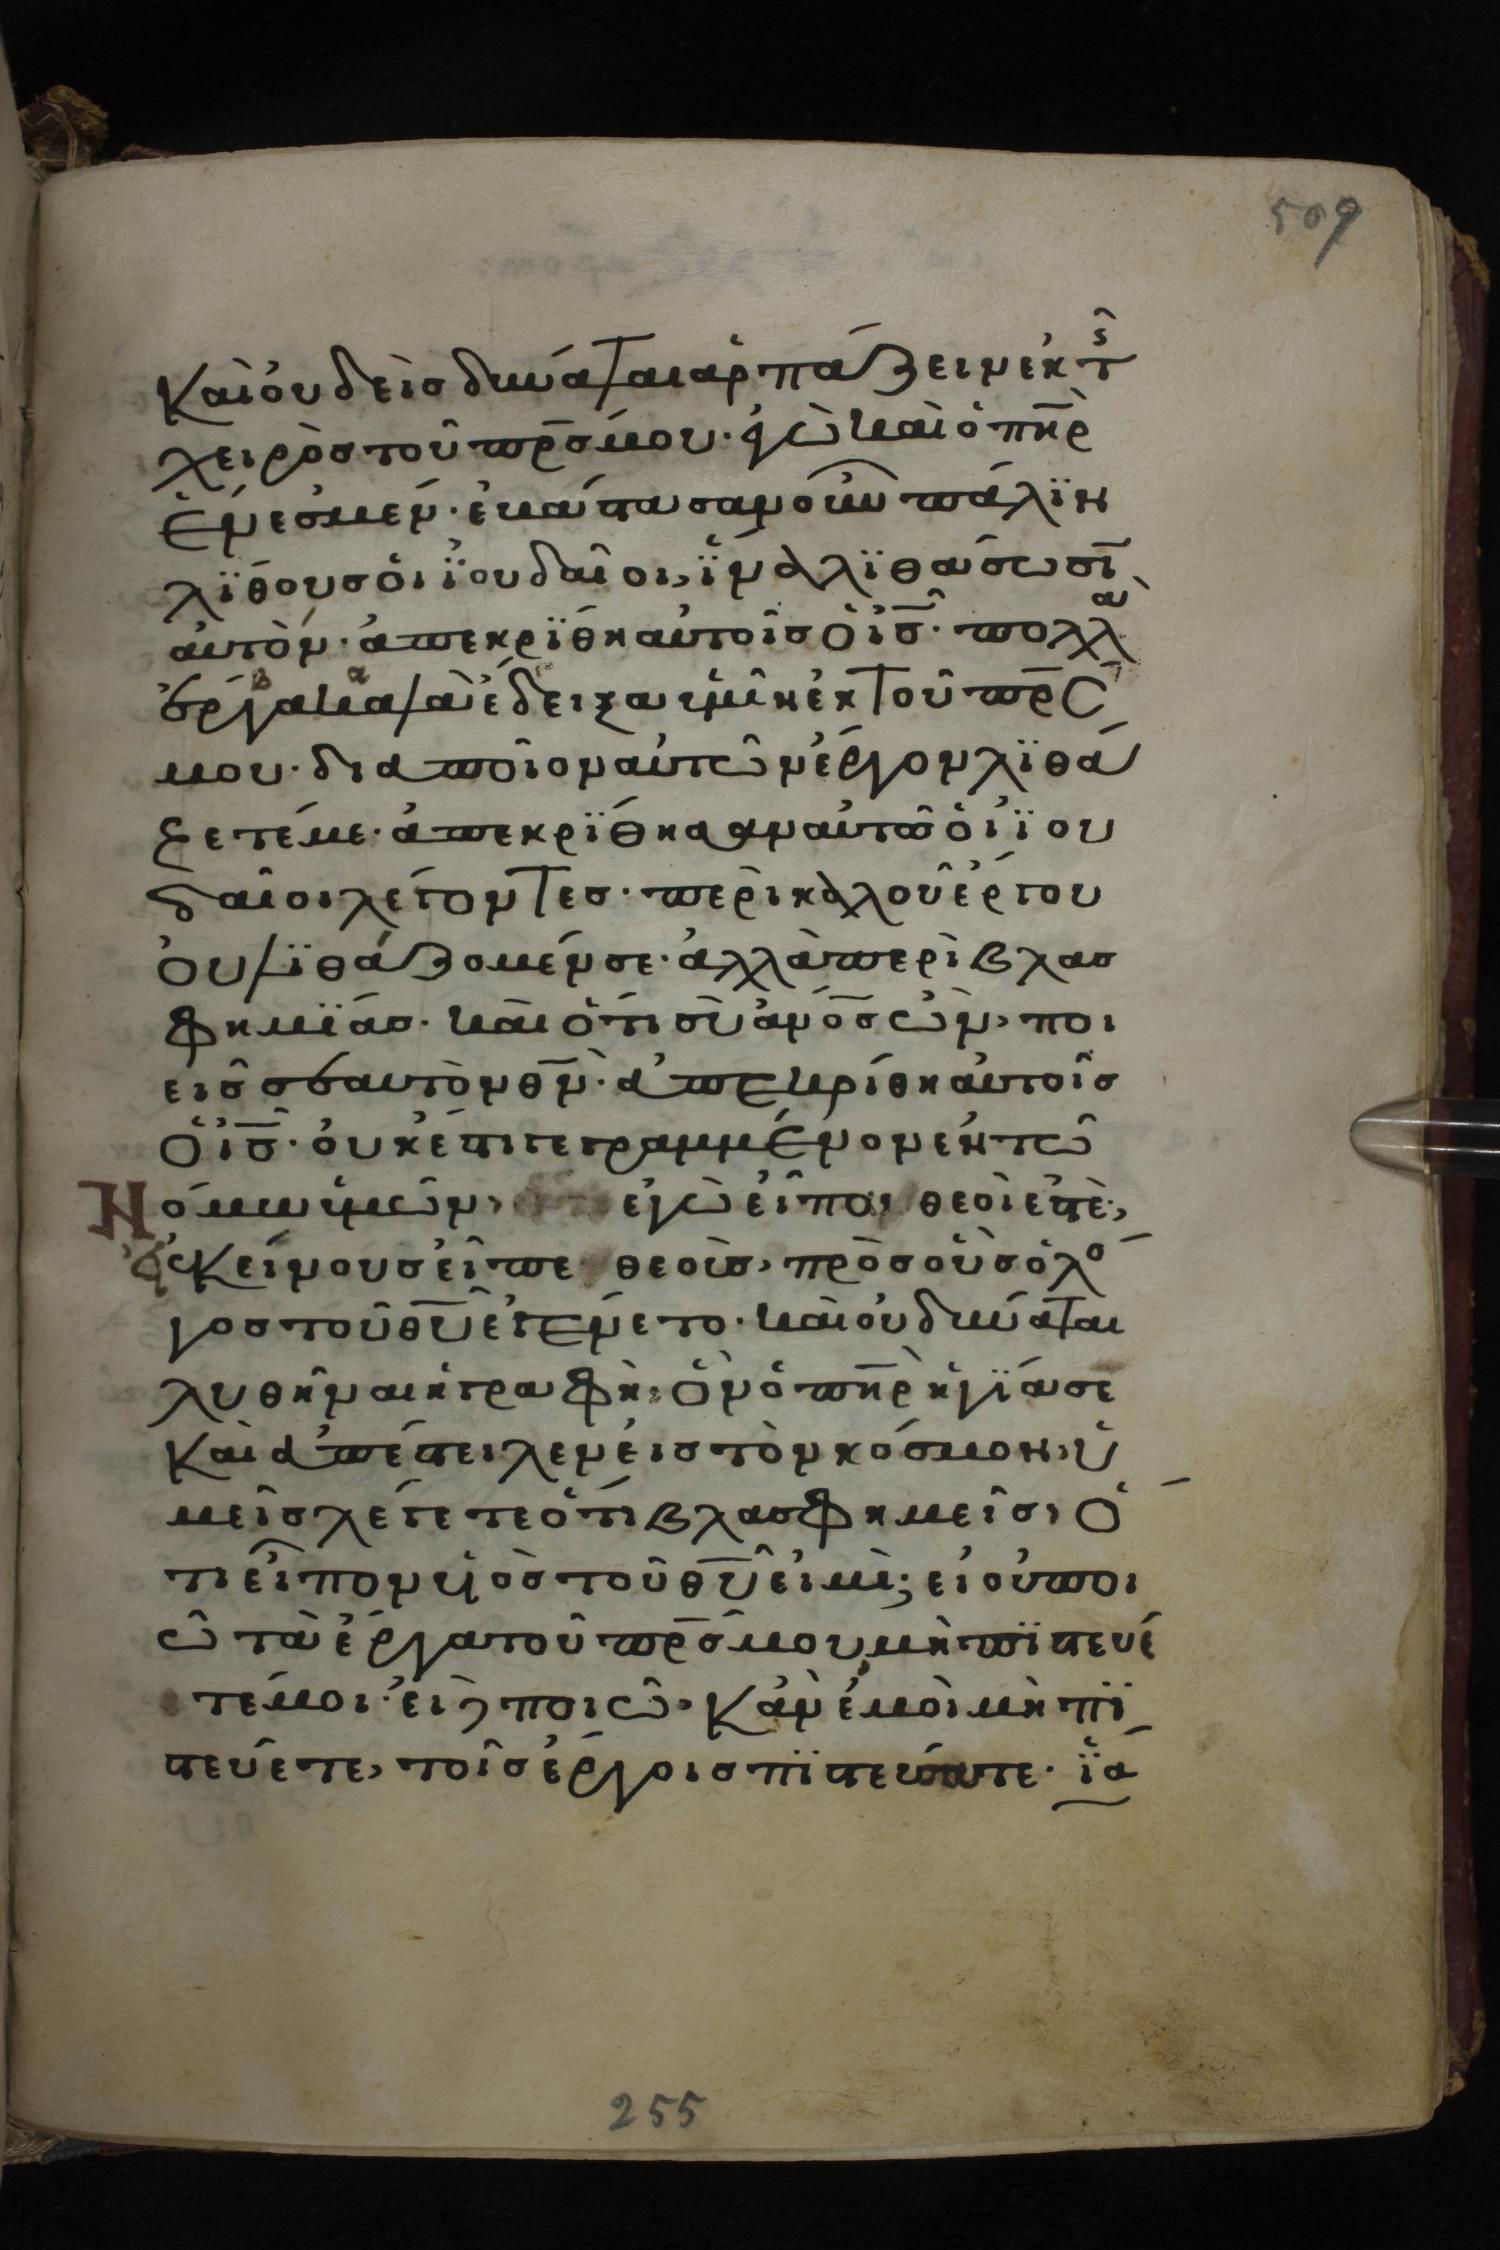 509
Καὶ οὐδεὶς δύναται ἁρπάζειν ἐκ τῆς
χειρὸς τοῦ πρ̅σ μου· ἐγὼ καὶ ὁ πη̅ρ
ἕν ἐσμεν· ἐβάστασαν οὖν πάλϊν
λΐθους οἱ ϊουδαῖοι, ἵ̈να λϊθάσωσϊ
αὐτόν· ἀπεκρΐθη αὐτοῖς ὁ ι̅ς̅· πολλὰ
ἔργα καλὰ ἔδειξα ὑμῖν ἐκ τοῦ πρ̅ς
μου· δια ποῖον αὐτῶν ἔργον λϊθά
ζετέ με· ἀπεκρΐθησαν αὐτῶ οἱ ϊου
δαῖοι λέγοντες· περὶ καλοῦ ἔργου
οὐ λϊθάζομέν σε· ἀλλὰ περὶ βλασ
φημΐας· καὶ ὅτι σὺ ἄνο̅ς ὢν, ποι
εῖς σεαυτὸν θ̅ν̅· ἀπεκρίθη αὐτοῖς
ὁ ι̅ς̅· οὐκ ἔστι γεγραμμένον ἐν τῶ
Νόμω ὑμῶν, ἐγὼ εἶπα, θεοί ἐστὲ,
εἰ ἐκείνους εἶπε θεοὺς, πρὸς οὓς ὁ λό
γος τοῦ θ̅υ̅ ἐγένετο· καὶ οὐ δύναται
λυθῆναι ἡ γραφὴ· ὃν ὁ πη̅ρ ἡγΐασε
Καὶ ἀπέστειλεν εἰς τὸν κόσμον, ὑ
μεῖς λέγετε ὅτι βλασφημεῖς, ὅ
τι εἶπον υἱὸς τοῦ θ̅υ̅ εἰμὶ; εἰ οὐ ποι
ῶ τὰ ἔργα τοῦ πρ̅ς μου μὴ πϊστεύέ
τέ μοι· εἰ δὲ ποιῶ, Κἀν ἐμοὶ μὴ πϊ
στεύετε, τοῖς ἔργοις πϊστεύσατε· ἵ̈να
255